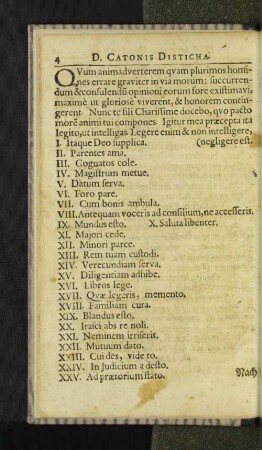 4 D. CATONIS DISTICHA.
QVum animadverterem qvam plurimos homi-
nes errare graviter in via morum: succurren-
dum & consulendũ opinioni eorum fore existimavi,
maximè ut gloriosè viverent, & honorem contin-
gerent. Nunc te fili Charissime docebo, qvo pacto
morẽ animi tui compones. Igitur mea præcepta ita
legito, ut intelligas. Legere enim & non intelligere,
I. Itaque Deo supplica. (negligere est.
II. Parentes ama.
III. Cognatos cole.
IV. Magistrum metue.
V. Datum serva.
VI. Foro pare.
VII. Cum bonis ambula.
VIII. Antequam voceris ad consilium, ne accesseris.
IX. Mundus esto. X. Saluta libenter.
XI. Majori cede.
XII. Minori parce.
XIII. Rem tuam custodi.
XIV. Verecundiam serva.
XV. Diligentiam adhibe.
XVI. Libros lege.
XVII. Qvæ legeris, memento,
XVIII. Familiam cura.
XIX. Blandus esto,
XX. Irasci abs re noli.
XXI. Neminem irriseris.
XXII. Mutuum dato.
XXIII. Cui des, vide to.
XXIV. In Judicium adesto.
XXV. Ad prætorium stato.
Nach